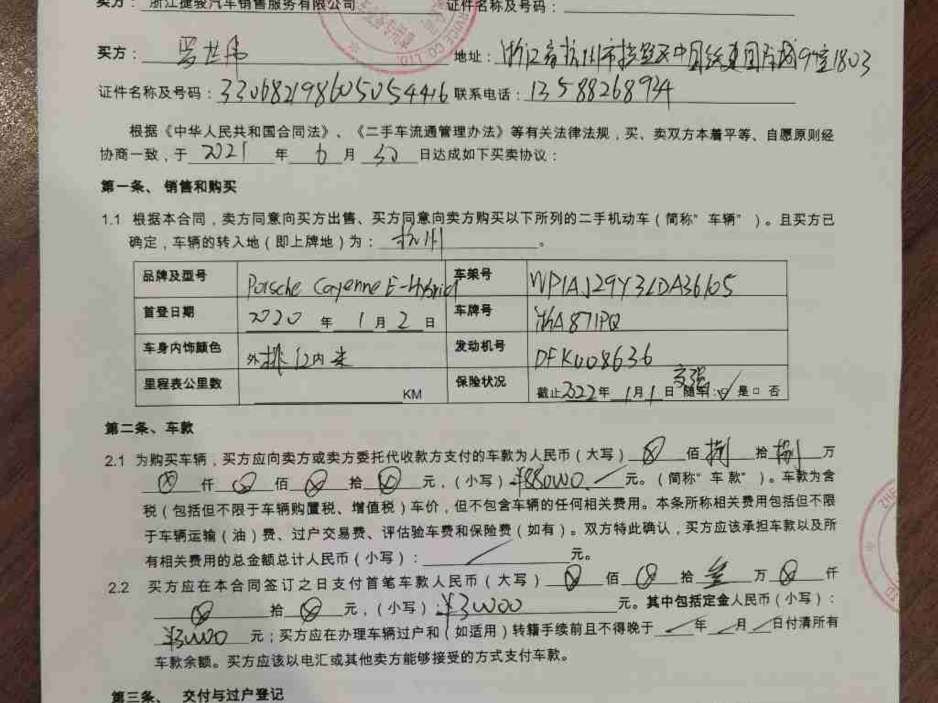 卖方：浙江捷骏汽车销售服务有限公司 证件名称及号码：
买方： 罗世伟 地址：浙江省杭州市拱墅区中 9幢1803
证件名称及号码：330682198605054416 联系电话：13588268934
根据《中华人民共和国合同法》、《二手车流通管理办法》等有关法律法规，买、卖双方本着平等、自愿原则经
协商一致，于 2021 年 6 月 30 日达成如下买卖协议：
第一条、 销售和购买
1.1 根据本合同，卖方同意向买方出售、买方同意向卖方购买以下所列的二手机动车（简称“车辆”）。且买方已
确定，车辆的转入地（即上牌地）为： 杭州 。
品牌及型号 Porsche Cayenne E-Hybrid 车架号 WP1AJ29Y3LDA36105
首登日期 2020 年 1 月 2 日 车牌号 浙A871PQ
车身内饰颜色 外 内 发动机号 DFK008636
里程表公里数 KM 保险状况 截止2022年 1月1日 交强 随车：☑ 是□ 否
第二条、车款
2.1 为购买车辆，买方应向卖方或卖方委托代收款方支付的车款为人民币（大写） ⊗ 佰 捌 拾 捌 万
⊗ 仟 ⊗ 佰 ⊗ 拾 ⊗ 元，（小写）¥880000 元。（简称“车款”）。车款为含
税（包括但不限于车辆购置税、增值税）车价，但不包含车辆的任何相关费用。本条所称相关费用包括但不限
于车辆运输（油）费、过户交易费、评估验车费和保险费（如有）。双方特此确认，买方应该承担车款以及所
有相关费用的总金额总计人民币（小写）： / 元。
2.2 买方应在本合同签订之日支付首笔车款人民币（大写） ⊗ 佰 ⊗ 拾 叁 万 ⊗ 仟
⊗ 拾 ⊗ 元，（小写）¥30000 元。其中包括定金人民币（小写）：
¥30000 元；买方应在办理车辆过户和（如适用）转籍手续前且不得晚于 / 年 / 月 / 日付清所有
车款余额。买方应该以电汇或其他卖方能够接受的方式支付车款。
第三条、 交付与过户登记